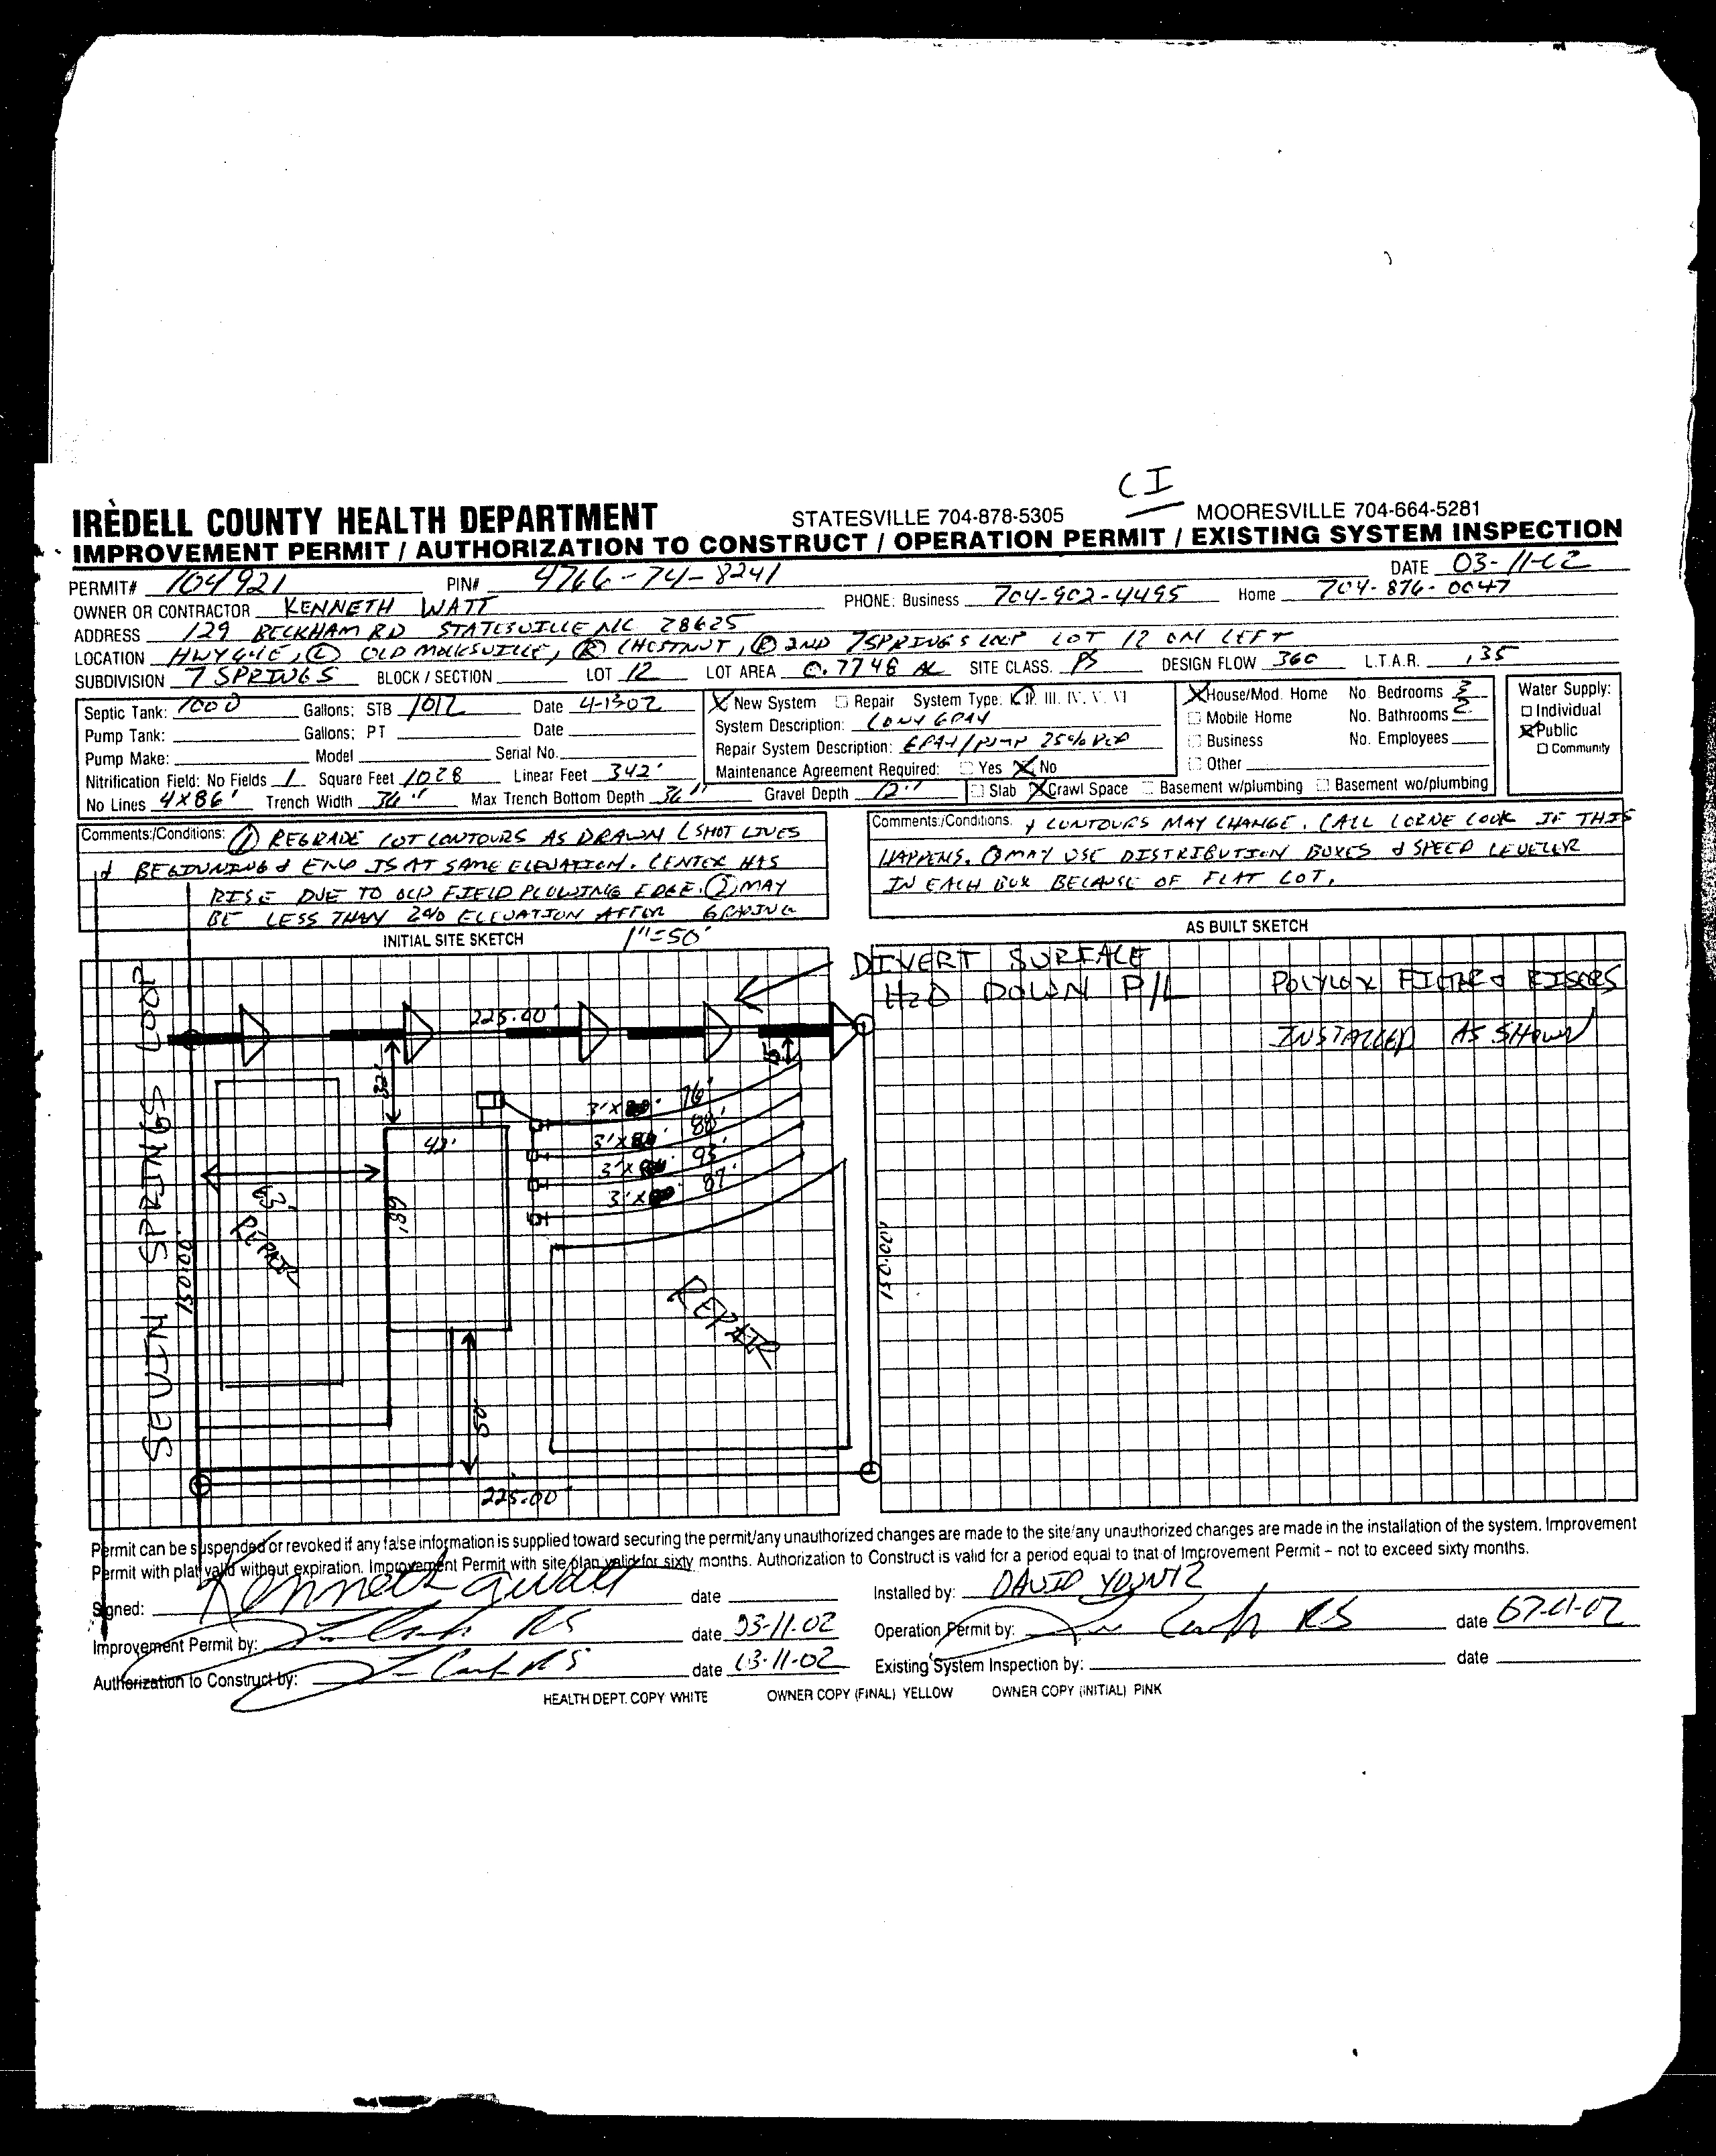 CI
IREDELL COUNTY HEALTH DEPARTMENT STATESVILLE 704-878-5305 MOORESVILLE 704-664-5281
IMPROVEMENT PERMIT / AUTHORIZATION TO CONSTRUCT / OPERATION PERMIT / EXISTING SYSTEM INSPECTION
PERMIT# 104921 PIN# 4766-74-8241 DATE 03-11-02
OWNER OR CONTRACTOR KENNETH WATT PHONE: Business 704-902-4495 Home 704-876-0047
ADDRESS 129 BECKHAM RD STATESVILLE NC 28625
LOCATION HWY 64E, (L) OLD MOCKSVILLE, (R) CHESTNUT, (R) 2ND 7 SPRINGS LOOP LOT 12 ON LEFT
SUBDIVISION 7 SPRINGS BLOCK / SECTION LOT 12 LOT AREA 0.7748 AC SITE CLASS. PS DESIGN FLOW 360 L.T.A.R. .35
Septic Tank: 1000 Gallons; STB 1012 Date 4-1302
Pump Tank: Gallons; PT Date
Pump Make: Model Serial No.
Nitrification Field: No Fields 1 Square Feet 1028 Linear Feet 342'
No Lines 4X86' Trench Width 36" Max Trench Bottom Depth 36" Gravel Depth 12"
New System Repair System Type: II. III. IV. V. VI
System Description: CONV GRAV
Repair System Description: GRAV/PUMP 25% RED
Maintenance Agreement Required: Yes No
House/Mod. Home No. Bedrooms 3
Mobile Home No. Bathrooms 2
Business No. Employees
Other
Slab Crawl Space Basement w/plumbing Basement wo/plumbing
Water Supply:
Individual
Public
Community
Comments:/Conditions: (1) REGRADE LOT CONTOURS AS DRAWN (SHOT LINES
& BEGINNING & END IS AT SAME ELEVATION. CENTER HAS
RISE DUE TO OLD FIELD PLOWING EDGE. (2) MAY
BE LESS THAN 2% ELEVATION AFTER GRADING
Comments:/Conditions. & CONTOURS MAY CHANGE. CALL LORNE COOK IF THIS
HAPPENS. (3) MAY USE DISTRIBUTION BOXES & SPEED LEVELER
IN EACH BOX BECAUSE OF FLAT LOT.
INITIAL SITE SKETCH 1"=50'
AS BUILT SKETCH
DIVERT SURFACE
H2O DOWN P/L
POLYLOK FILTER & RISERS
INSTALLED AS SHOWN
SEVIN SPRINGS LOOP
225.00'
32'
15'
3'X 76'
3'X 88'
3'X 93'
3'X 87'
42'
63'
68'
REPAIR
150.00'
REPAIR
150.00'
50'
225.00'
Permit can be suspended or revoked if any false information is supplied toward securing the permit/any unauthorized changes are made to the site/any unauthorized changes are made in the installation of the system. Improvement
Permit with plat valid without expiration. Improvement Permit with site plan valid for sixty months. Authorization to Construct is valid for a period equal to that of Improvement Permit – not to exceed sixty months.
Signed: Kenneth Watt date Installed by: DAVID YOUNTZ
Improvement Permit by: RS date 03-11-02 Operation Permit by: RS date
Authorization to Construct by: RS date 03-11-02 Existing System Inspection by: date
HEALTH DEPT. COPY WHITE OWNER COPY (FINAL) YELLOW OWNER COPY (INITIAL) PINK